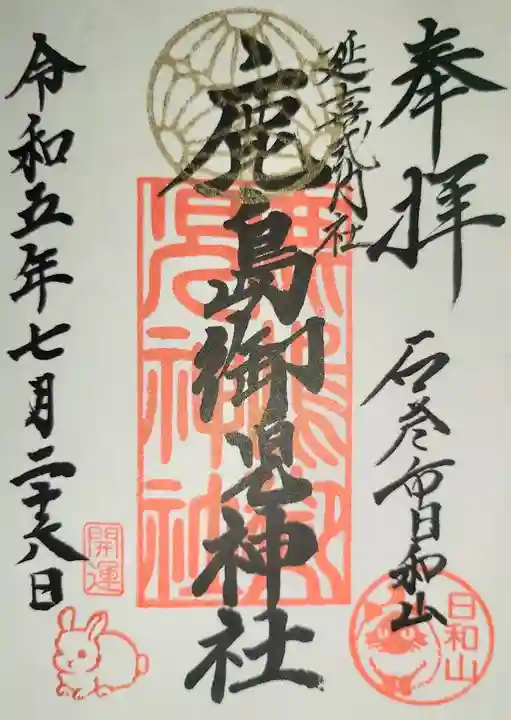 奉拝
石巻市日和山
日和山
延喜式内社
鹿島御児神社
鹿嶋御児神社
令和五年七月二十八日
開運